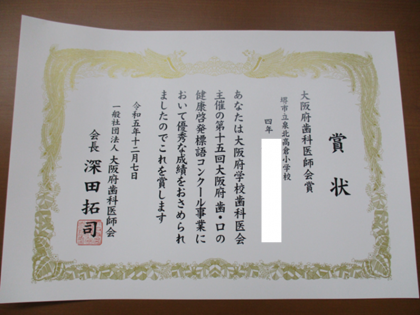 賞状
大阪府歯科医師会賞
堺市立泉北高倉小学校
四年
あなたは大阪府学校歯科医会
主催の第十五回大阪府 歯・口の
健康啓発標語コンクール事業に
おいて優秀な成績をおさめられ
ましたのでこれを賞します
令和五年十二月七日
一般社団法人 大阪府歯科医師会
会長 深田拓司